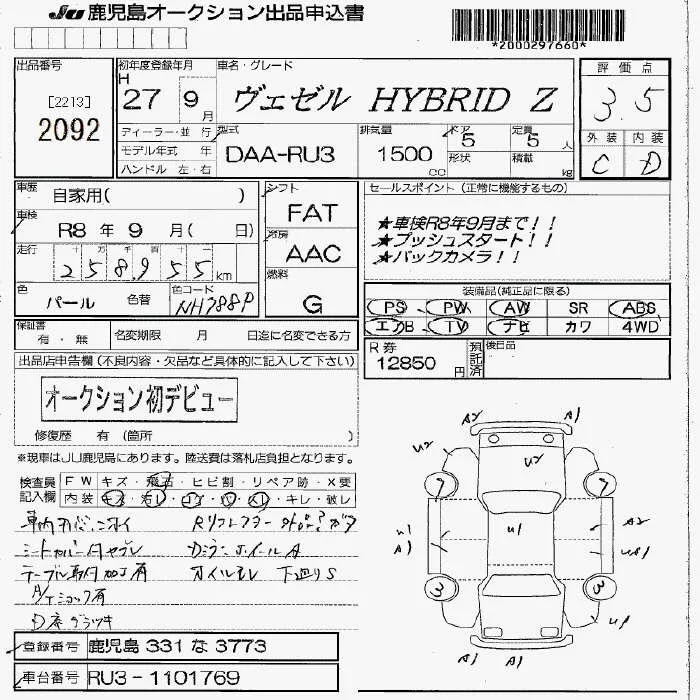 JU 鹿児島オークション出品申込書
*2000297660*
出品番号
[2213]
2092
初年度登録年月
H
27 9 月
車名・グレード
ヴェゼル HYBRID Z
評価点
3.5
外装 内装
C D
ディーラー・並 行
モデル年式 年
ハンドル 左・右
型式
DAA-RU3
排気量
1500 cc
ドア
5
形状
定員
5 人
積載
kg
車歴
自家用( )
車検
R8 年 9 月( 日)
走行
十 万 千 百 十 一
258,955 km
色
パール
色替
色コード
NH788P
シフト
FAT
冷房
AAC
燃料
G
セールスポイント(正常に機能するもの)
★車検R8年9月まで!!
★プッシュスタート!!
★バックカメラ!!
装備品(純正品に限る)
PS PW AW SR ABS
エアB TV ナビ カワ 4WD
保証書
有・無
名変期限 月 日迄に名変できる方
R券
12850 円
預託済
後日品
出品店申告欄(不良内容・欠品など具体的に記入して下さい)
オークション初デビュー
修復歴 有(箇所 )
※現車はJU鹿児島にあります。陸送費は落札店負担となります。
検査員記入欄
FW キズ・飛石・ヒビ割・リペア跡・X要
内装 キズ・汚レ・コゲ・穴・スレ・キレ・破レ
シートカバー
テーブル取付加工有
オイルモレ 下廻りS
登録番号 鹿児島 331 な 3773
車台番号 RU3-1101769
A2 A1
U2
U2
7 7
U1
A1
U1
A2
3 3
U1
A1 A1